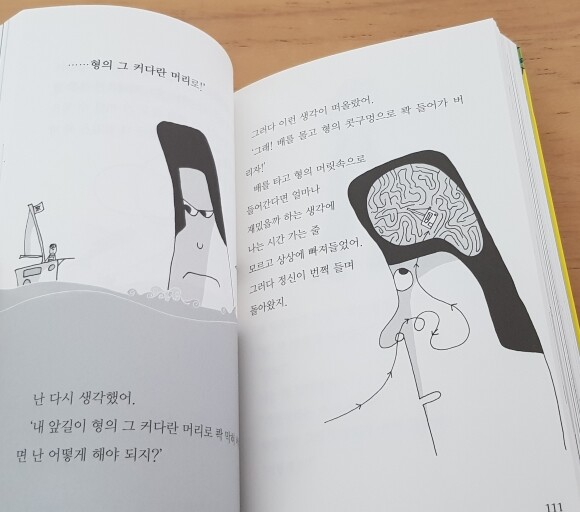 ……형의 그 커다란 머리로!'
난 다시 생각했어.
'내 앞길이 형의 그 커다란 머리로 콱 막혀
면 난 어떻게 해야 되지?'
그러다 이런 생각이 떠올랐어.
'그래! 배를 몰고 형의 콧구멍으로 콱 들어가 버
리자!'
배를 타고 형의 머릿속으로
들어간다면 얼마나
재밌을까 하는 생각에
나는 시간 가는 줄
모르고 상상에 빠져들었어.
그러다 정신이 번쩍 들며
돌아왔지.
111